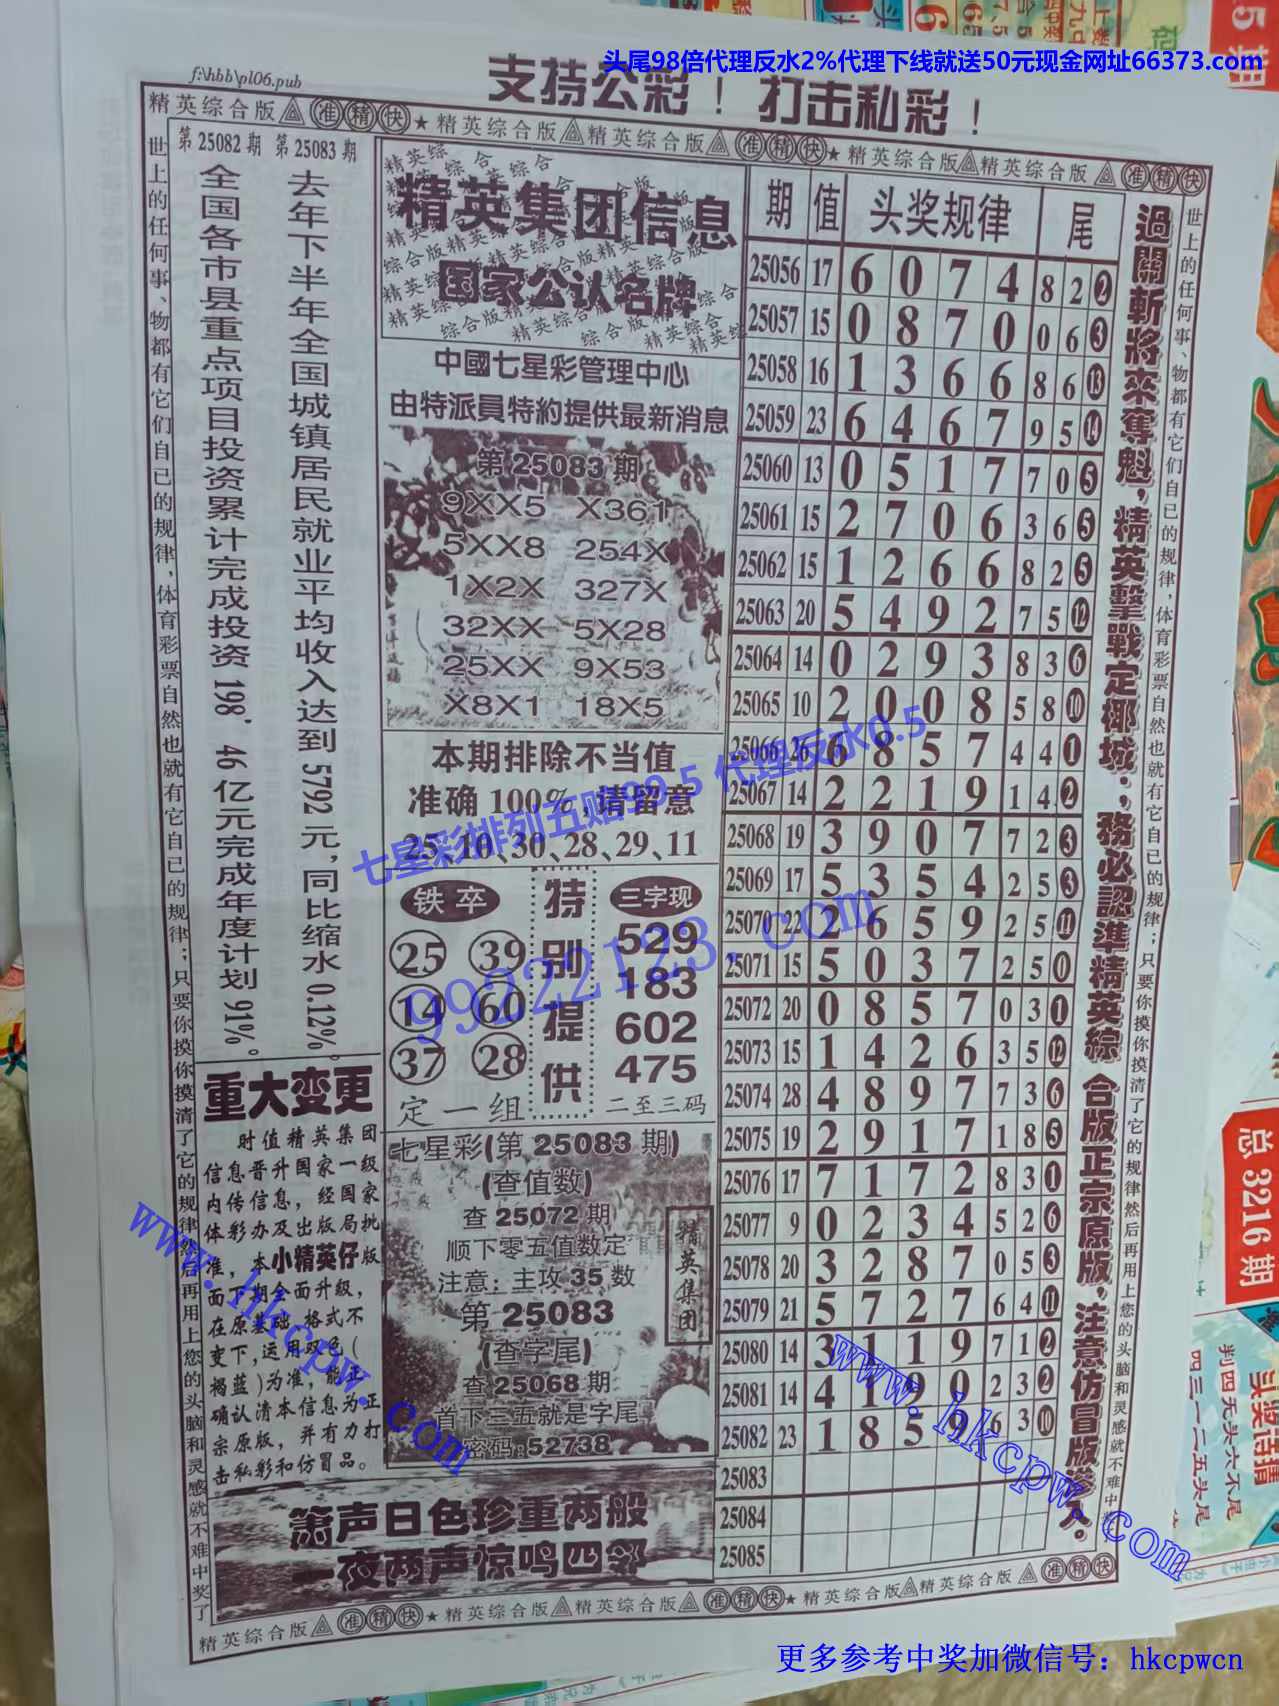 头尾98倍代理反水2%代理下线就送50元现金网址66373.com
f:\hbb\pl06.pub
支持公彩！ 打击私彩！
精英综合版 准精快 ★ 精英综合版 精英综合版 准精快 ★ 精英综合版 精英综合版 准精快
世上的任何事、物都有它们自已的规律,体育彩票自然也就有它自已的规律;只要你摸你摸清了它的规律然后再用上您的头脑和灵感就不难中奖了
第25082期 第25083期
去年下半年全国城镇居民就业平均收入达到5792元,同比缩水0.12%。
全国各市县重点项目投资累计完成投资198.46亿元完成年度计划91%。
重大变更
时值精英集团
信息晋升国家一级
内传信息，经国家
体彩办及出版局批
准，本小精英仔版
面下期全面升级，
在原基础 格式不
变下,运用双色(
褐蓝)为准，能正
确认清本信息为正
宗原版，并有力打
击私彩和仿冒品。
精英集团信息
国家公认名牌
中國七星彩管理中心
由特派員特約提供最新消息
第25083期
9XX5 X361
5XX8 254X
1X2X 327X
32XX 5X28
25XX 9X53
X8X1 18X5
本期排除不当值
准确100%,请留意
25、10、30、28、29、11
铁卒
25 39
14 60
37 28
定一组
特别提供
三字现
529
183
602
475
二至三码
七星彩(第25083期)
(查值数)
查25072期
顺下零五值数定
注意：主攻35数
第25083
(查字尾)
查25068期
首下三五就是字尾
密码:52738
精英集团
箫声日色珍重两般
一夜两声惊鸣四邻
期 值 头奖规律 尾
25056 17 6 0 7 4 8 2 2
25057 15 0 8 7 0 0 6 3
25058 16 1 3 6 6 8 6 13
25059 23 6 4 6 7 9 5 14
25060 13 0 5 1 7 7 0 5
25061 15 2 7 0 6 3 6 5
25062 15 1 2 6 6 8 2 5
25063 20 5 4 9 2 7 5 12
25064 14 0 2 9 3 8 3 6
25065 10 2 0 0 8 5 8 10
25066 26 6 8 5 7 4 4 1
25067 14 2 2 1 9 1 4 2
25068 19 3 9 0 7 7 2 3
25069 17 5 3 5 4 2 5 3
25070 22 2 6 5 9 2 5 11
25071 15 5 0 3 7 2 5 0
25072 20 0 8 5 7 0 3 1
25073 15 1 4 2 6 3 5 12
25074 28 4 8 9 7 7 3 6
25075 19 2 9 1 7 1 8 5
25076 17 7 1 7 2 8 3 1
25077 9 0 2 3 4 5 2 6
25078 20 3 2 8 7 0 5 3
25079 21 5 7 2 7 6 4 11
25080 14 3 1 1 9 7 1 2
25081 14 4 1 9 0 2 3 2
25082 23 1 8 5 9 6 3 10
25083
25084
25085
過關斬將來奪魁,精英擊戰定椰城.;務必認準精英綜 合版正宗原版,注意仿冒版滲入。
世上的任何事、物都有它们自已的规律,体育彩票自然也就有它自已的规律;只要你摸你摸清了它的规律然后再用上您的头脑和灵感就不难中奖
精英综合版 准精快 ★ 精英综合版 精英综合版 准精快 ★ 精英综合版 精英综合版 准精快
七星彩排列五赔99.5 代理反水0.5
99222123.com
www.hkcpw.com
www.hkcpw.com
总3216期
头奖诗情
判四无头六不尾
四三一二五头尾
更多参考中奖加微信号：hkcpwcn